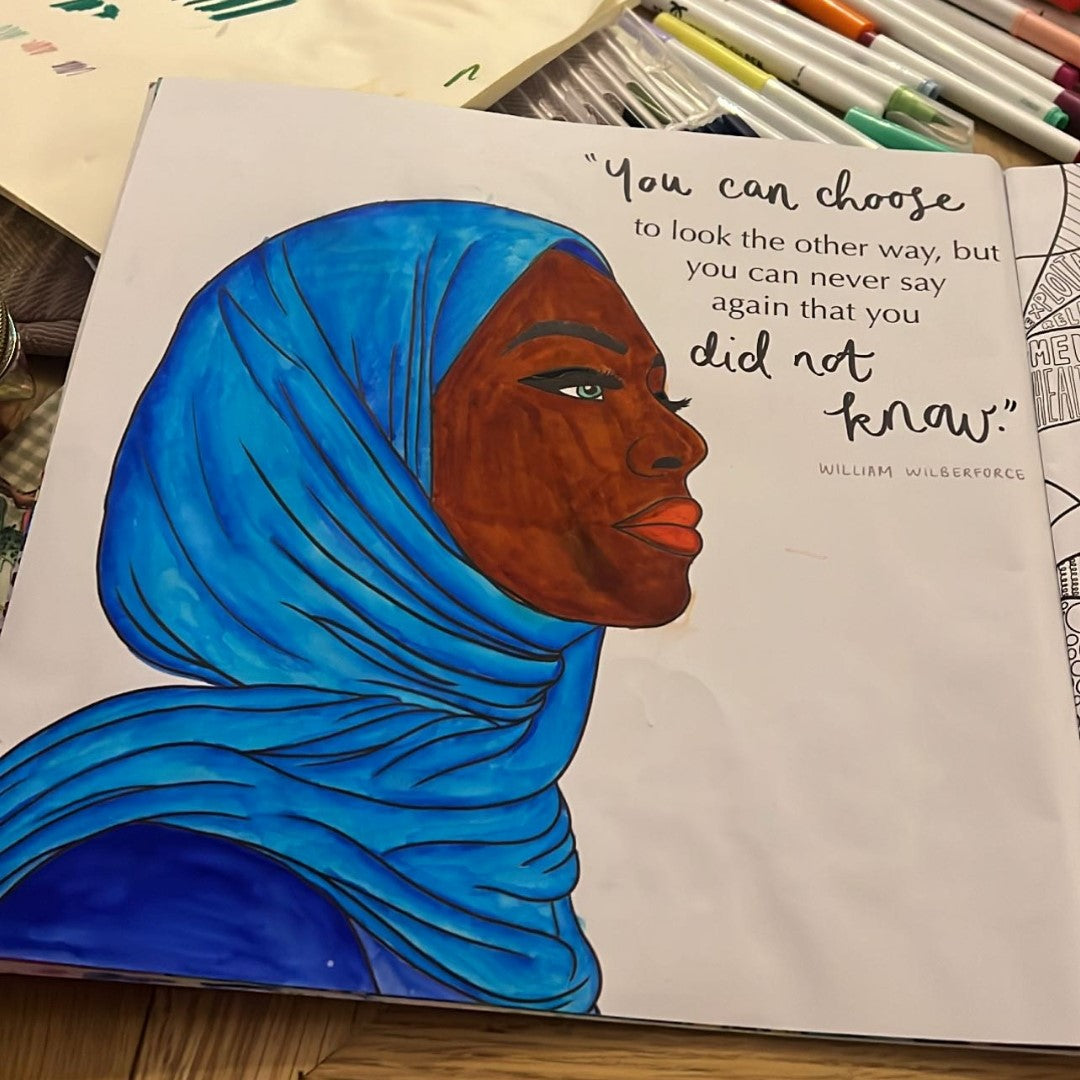 "You can choose
to look the other way, but
you can never say
again that you
did not
know."
WILLIAM WILBERFORCE